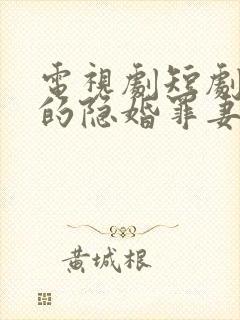 電視劇短劇
的隐婚罪妻
黄城根